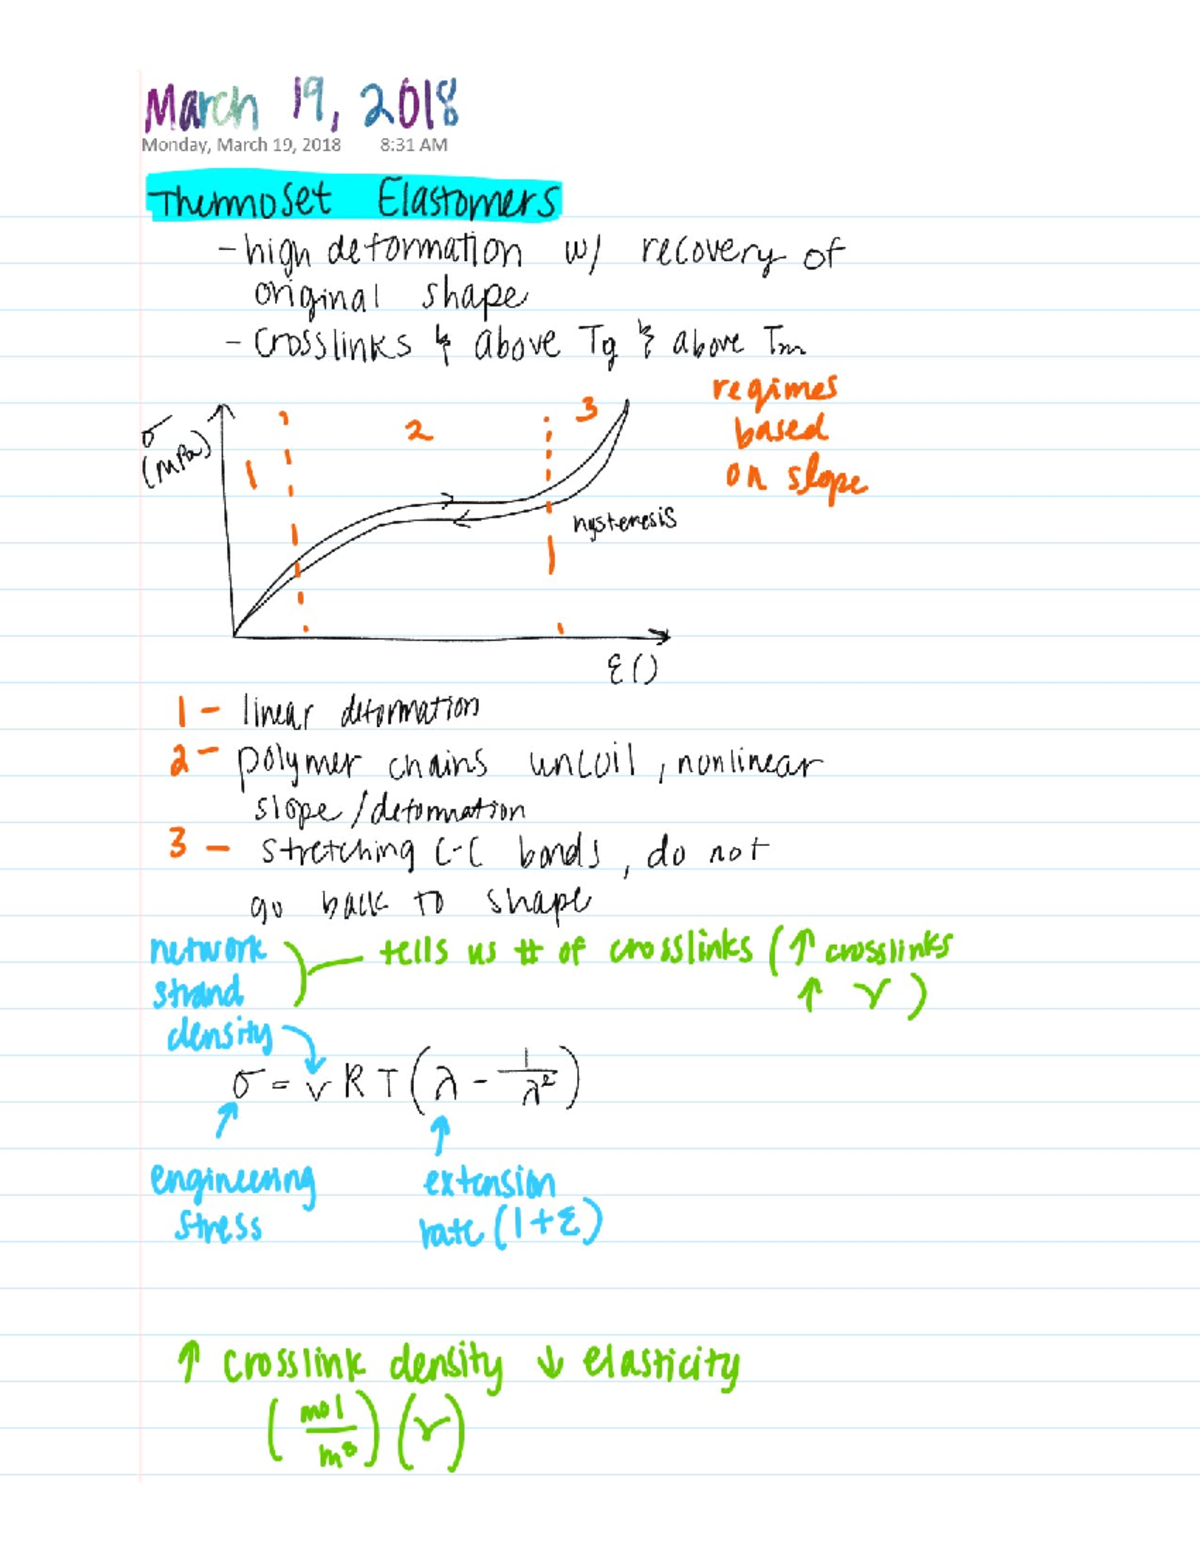 March 19, 2018
Monday, March 19, 2018 8:31 AM
Thermoset Elastomers
- high deformation w/ recovery of
original shape
- crosslinks & above Tg & above Tm
regimes
based
on slope
σ
(MPa)
1
2
3
hysteresis
ε()
1 - linear deformation
2 - polymer chains uncoil, nonlinear
slope/deformation
3 - stretching C-C bonds, do not
go back to shape
network
strand
density
tells us # of crosslinks (↑ crosslinks
↑ v)
σ = v R T (λ - 1/λ²)
engineering
stress
extension
rate (1+ε)
↑ crosslink density ↓ elasticity
(mol/m³) (v)